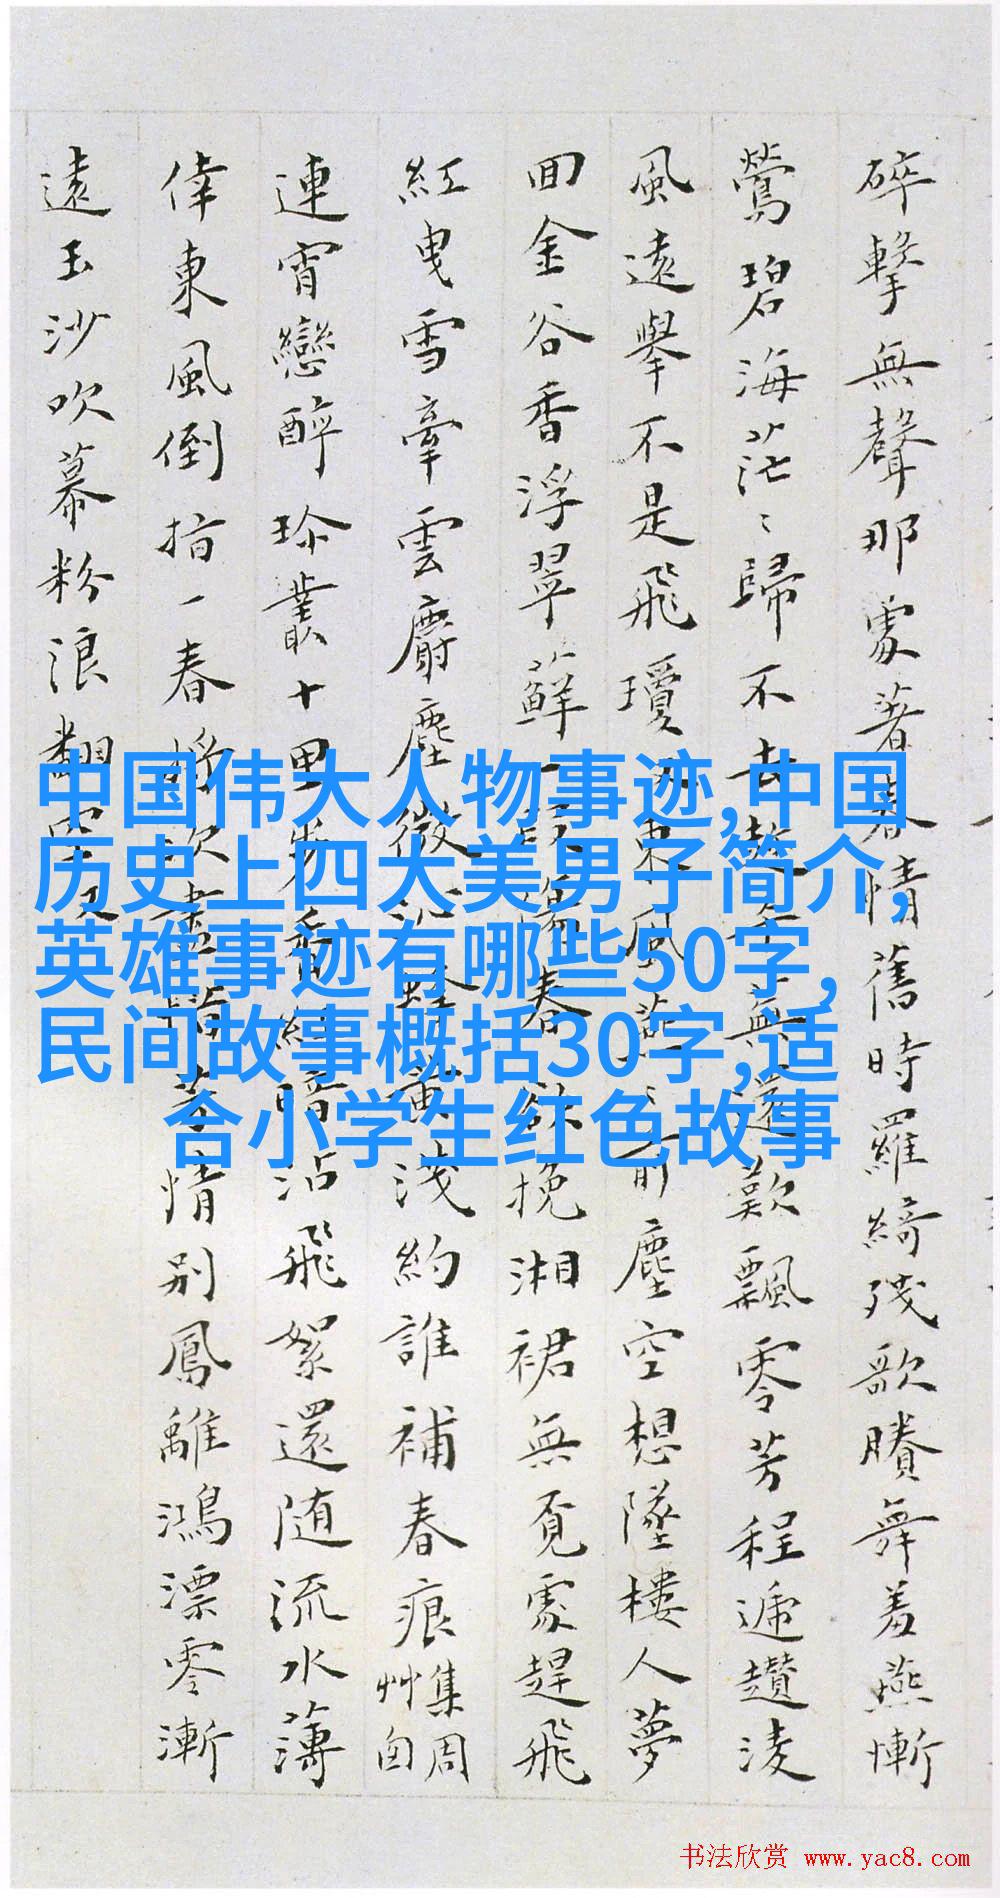 碎擊無聲那處著春情舊時羅綺殘歌賸舞羞燕慚
鶯碧海茫茫歸不去
無還歎飄零芳程遞趲淩
風遠舉不是飛瓊
東風
前塵空想墜樓人夢
回金谷香浮翠蘚一
春欲挽湘裙無覓處趕飛
紅曳雪牽雲麝塵微
淺約誰補春痕集周艸囪
連宵戀醉珍叢十里
香紅暗沾飛絮還随流水薄
倖東風倒指一春將次盡
情別鳳離鴻漂零漸
遠玉沙吹幕粉浪翻空
中国伟大人物事迹,中国
历史上四大美男子简介,
英雄事迹有哪些50字,
民间故事概括30字,适
合小学生红色故事
书法欣赏 www.yac8.com